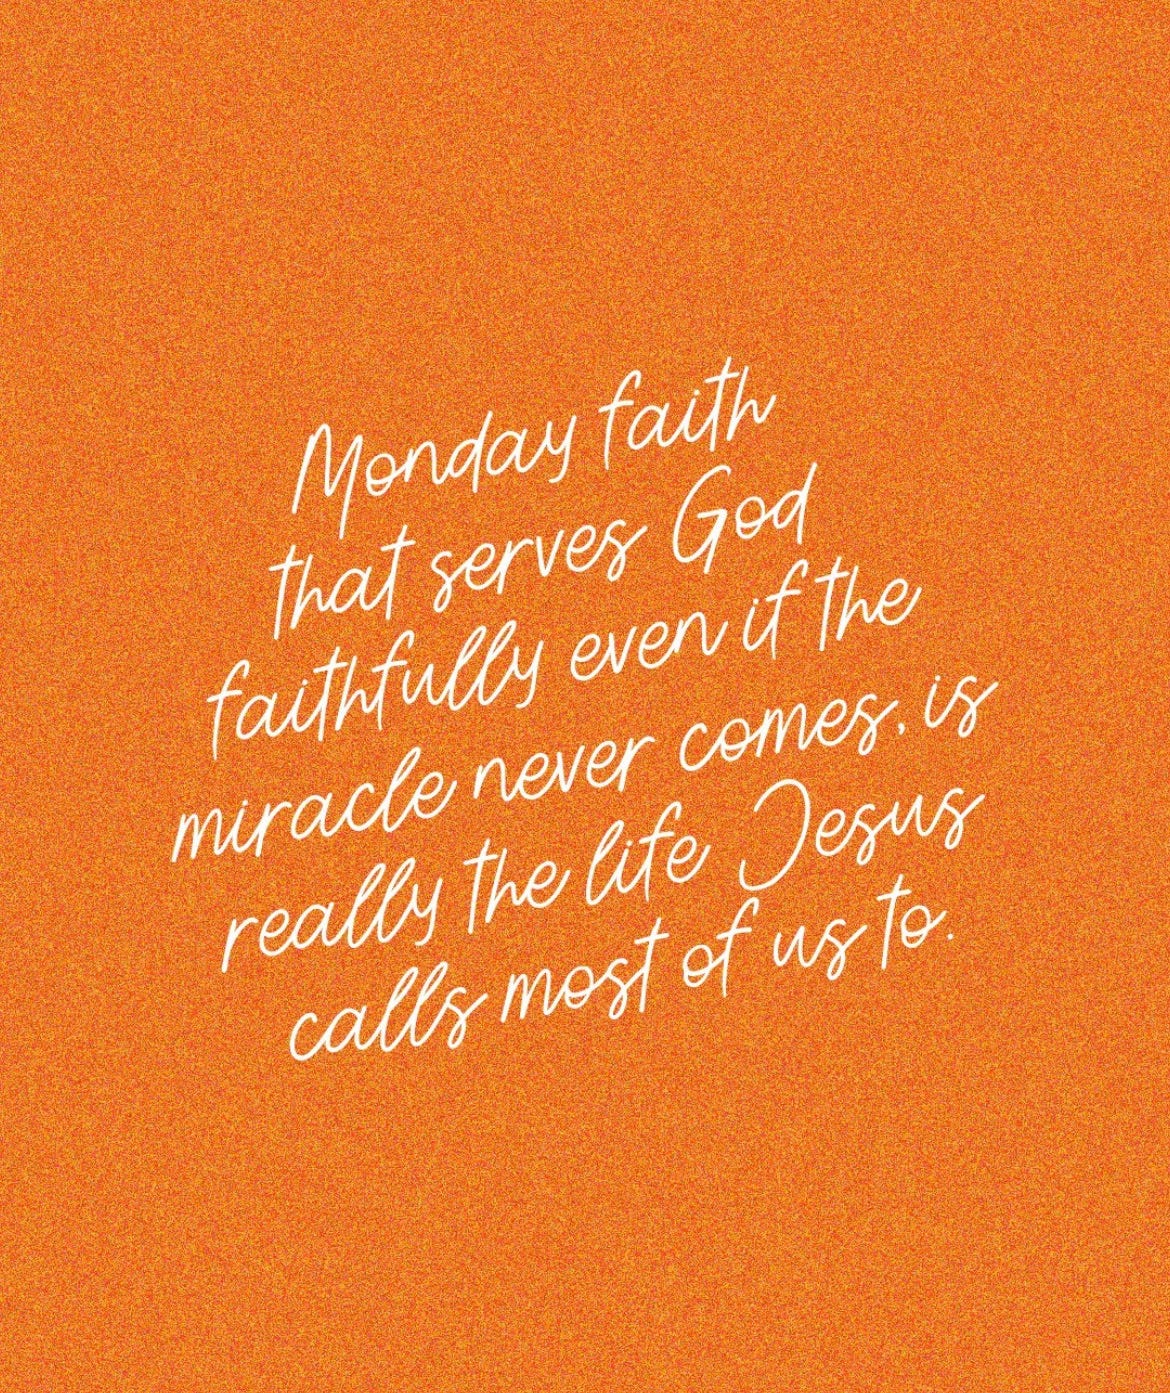 Monday faith
that serves God
faithfully even if the
miracle never comes, is
really the life Jesus
calls most of us to.